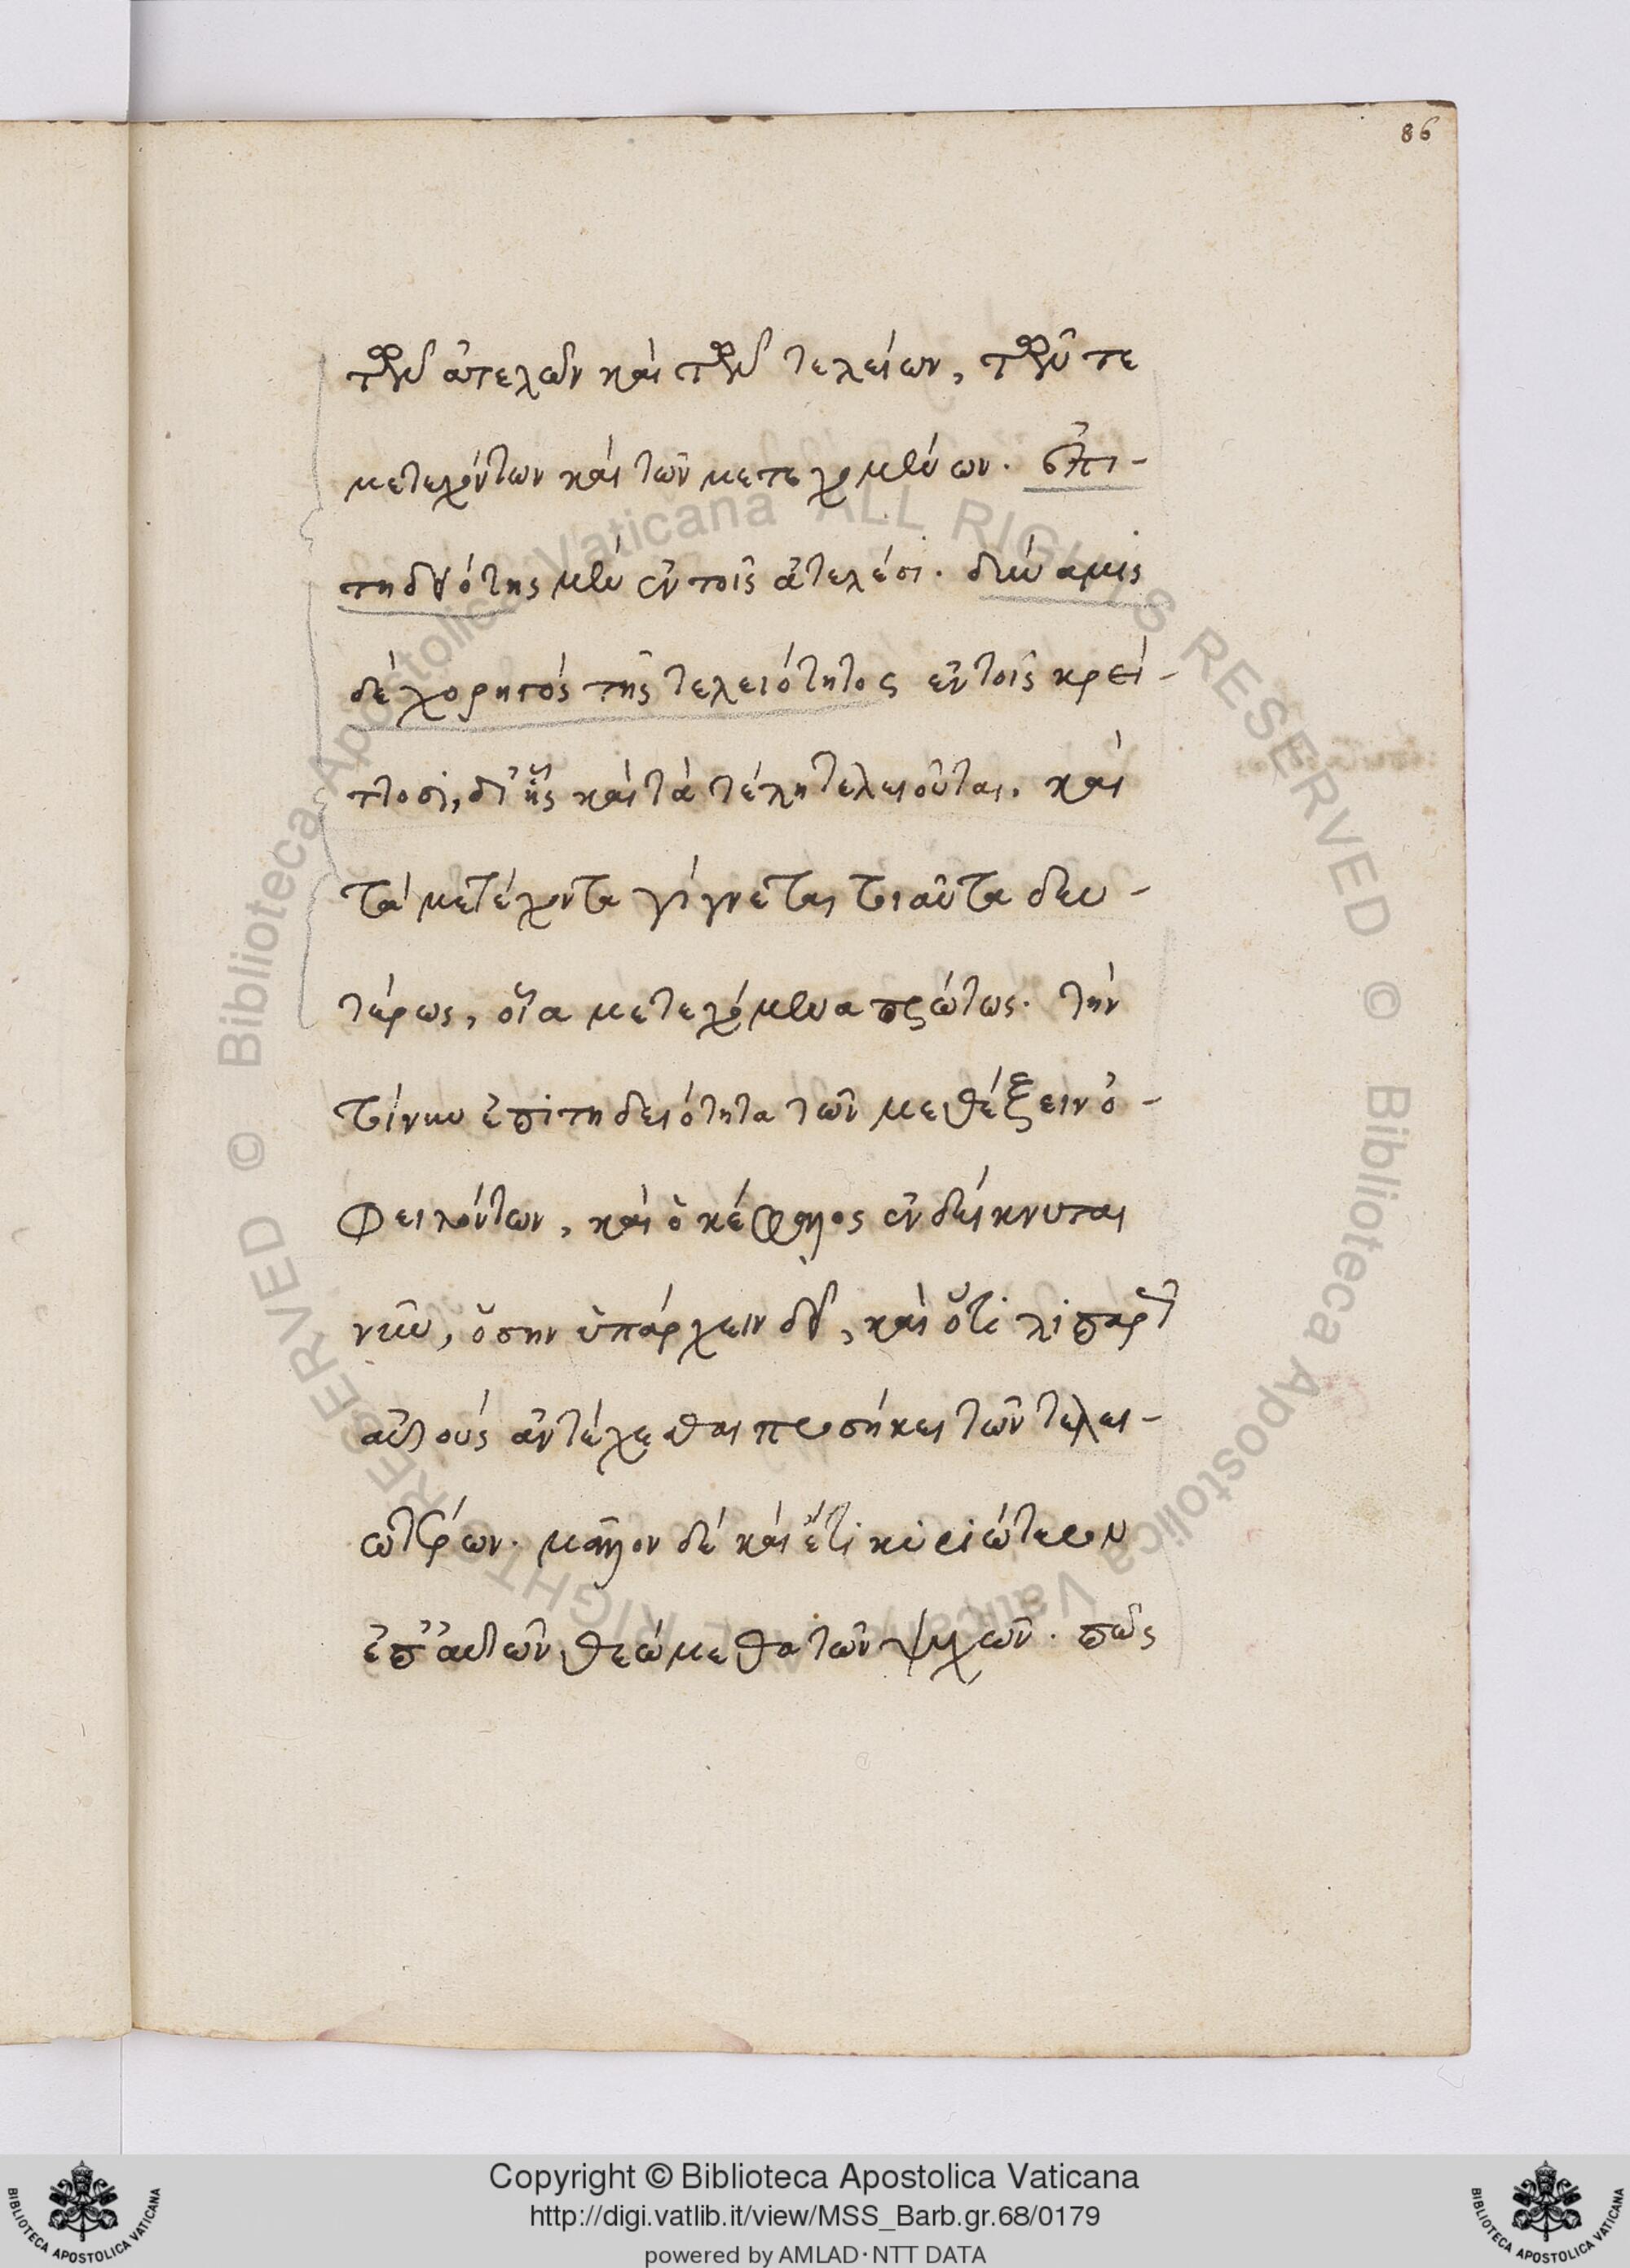 86
τοῦ ἀτελῶν καὶ τοῦ τελείων, τοῦ τε
μετεχόντων καὶ τῶν μετεχομένων. ἐπι-
τηδειότης μὲν ἐν τοῖς ἀτελέσι. δύναμις
δὲ χορηγός τῆς τελειότητος ἐν τοῖς κρεί-
ττοσι, δι' ἧς καὶ τὰ τέλη τελειοῦται. καὶ
τὰ μετέχοντα γίγνεται τοιαῦτα δευ-
τέρως, οἷα μετεχόμενα πρώτως. τὴν
τοίνυν ἐπιτηδειότητα τῶν μεθέξειν ὀ-
φειλόντων, καὶ ὁ κέφαλος ἐνδείκνυται
νῦν, ὅσην ὑπάρχειν δεῖ, καὶ ὅτι λιπαρῶς
αὐτοὺς ἀντέχεσθαι προσήκει τῶν τελει-
ωτέρων. μᾶλλον δὲ καὶ ἔτι κυριώτερον
ἐπ' αὐτῶν θεώμεθα τῶν ψυχῶν. πῶς
© Biblioteca Apostolica Vaticana ALL RIGHTS RESERVED © Biblioteca Apostolica Vaticana ALL RIGHTS RESERVED
Copyright © Biblioteca Apostolica Vaticana
http://digi.vatlib.it/view/MSS_Barb.gr.68/0179
powered by AMLAD·NTT DATA
BIBLIOTECA APOSTOLICA VATICANA
BIBLIOTECA APOSTOLICA VATICANA